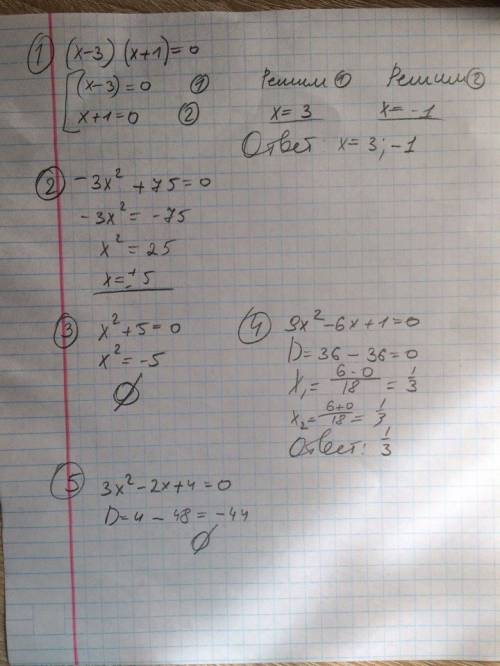 ① (x-3) (x+1)=0
(x-3)=0 ① Решим ① Решим ②
x+1=0 ② x=3 x=-1
Ответ x=3;-1
② -3x² +75=0
-3x²= -75
x²=25
x=±5
③ x²+5=0
x²=-5
∅
④ 9x²-6x+1=0
D=36-36=0
x₁= 6-0/18 = 1/3
x₂= 6+0/18 = 1/3
Ответ: 1/3
⑤ 3x²-2x+4=0
D=4-48=-44
∅